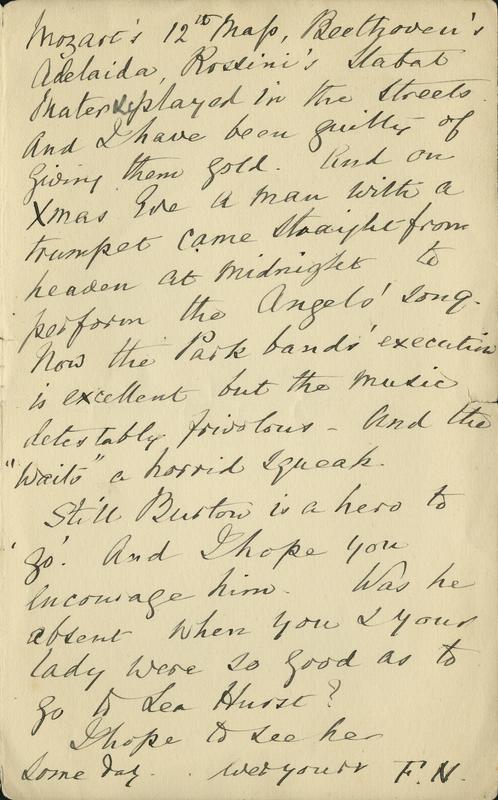 Mozart's 12th Mass, Beethoven's
Adelaida, Rossini's Stabat
Mater played in the streets
And I have been guilty of
giving them gold. And on
Xmas Eve a man with a
trumpet came straight from
heaven at midnight to
perform the Angels' song.
Now the Park bands' execution
is excellent but the music
detestably frivolous - And the
"Waits" a horrid squeak.
Still Burton is a hero to
'go'. And I hope you
encourage him. Was he
absent when you & your
lady were so good as to
go to Lea Hurst?
I hope to see her
some day. ever yours F.N.